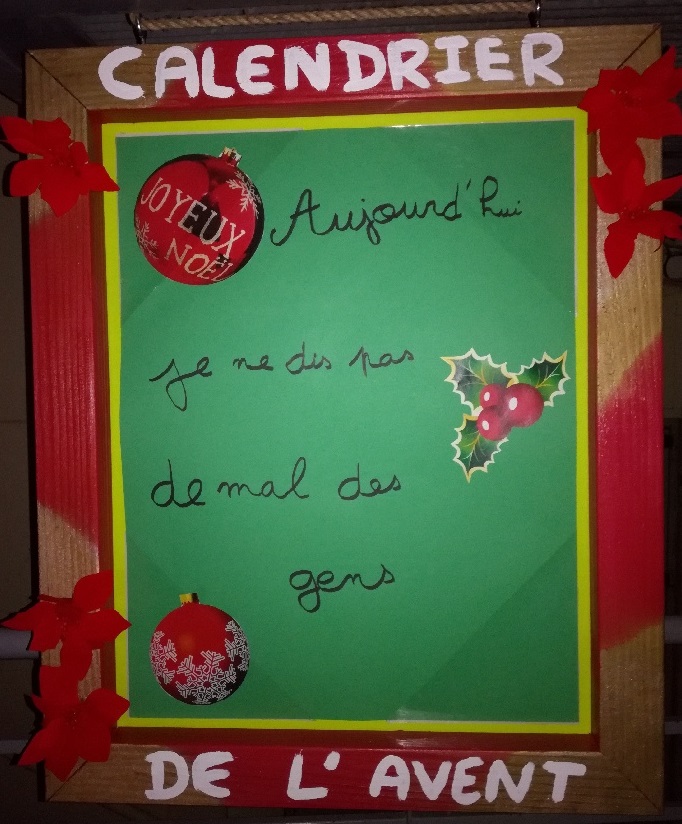 CALENDRIER
JOYEUX
NOËL
Aujourd'hui
je ne dis pas
de mal des
gens
DE L'AVENT